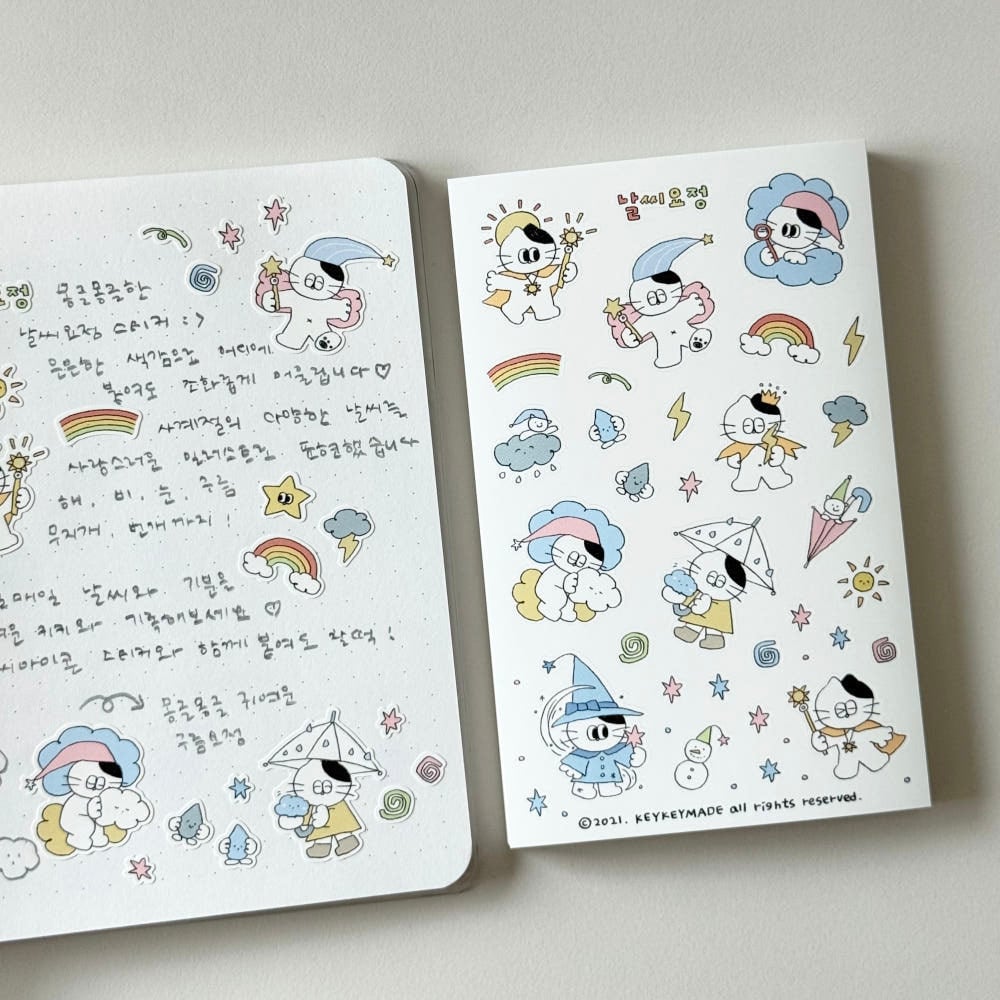 요정
몽글몽글한
날씨요정 스티커 :>
은은한 색감으로 어디에
붙여도 조화롭게 어울립니다♡
사계절의 다양한 날씨를
사랑스러운 일러스트로 표현했습니다
해, 비, 눈, 구름
무지개, 번개까지!
매일 날씨와 기분을
키키와 기록해보세요 ♡
아이콘 스티커와 함께 붙여도 찰떡!
몽글몽글 귀여운
구름요정
날씨요정
©2021. KEYKEYMADE all rights reserved.